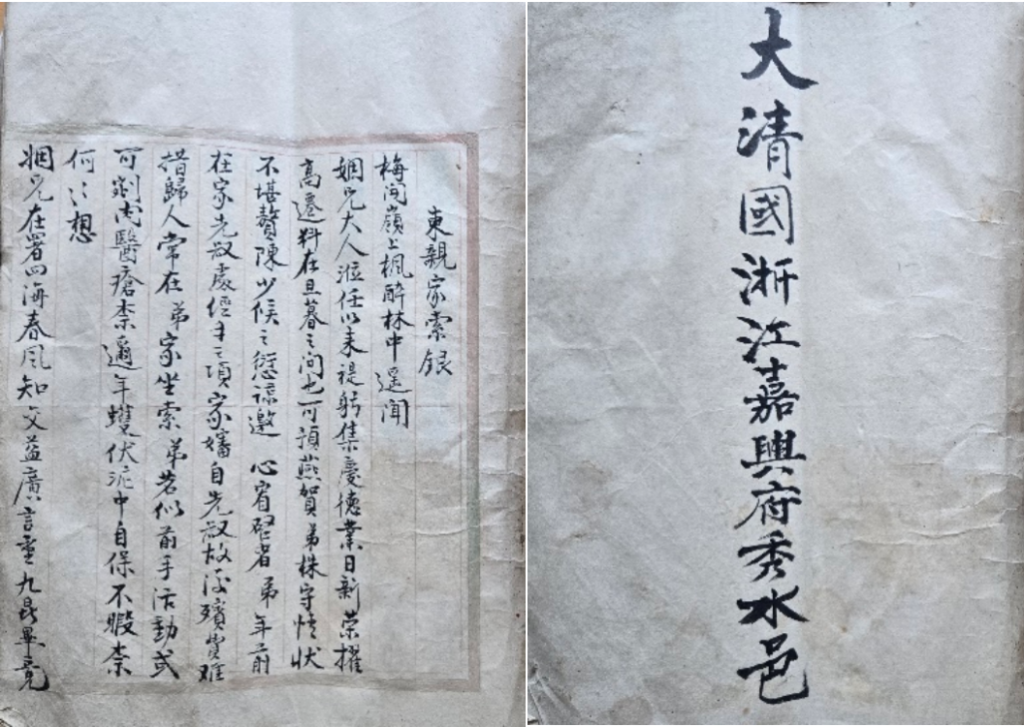 大清國浙江嘉興府秀水邑
東親家索銀
梅開嶺上楓醉林中遥聞
姻兄大人涖任以来禔躬集慶德業日新榮擢
高遷料在旦暮之间也可預燕賀弟株守情状
不堪贅陳少候之愆諒邀心宥啓者弟年前
在家先叔處經手之項家嬸自先叔故後殯費难
措歸人常在弟家坐索弟若似前手活動或
可剜肉醫瘡柰邇年蠖伏泥中自保不暇柰
何之想
姻兄在署四海春风知交益廣言重九鼎畢竟